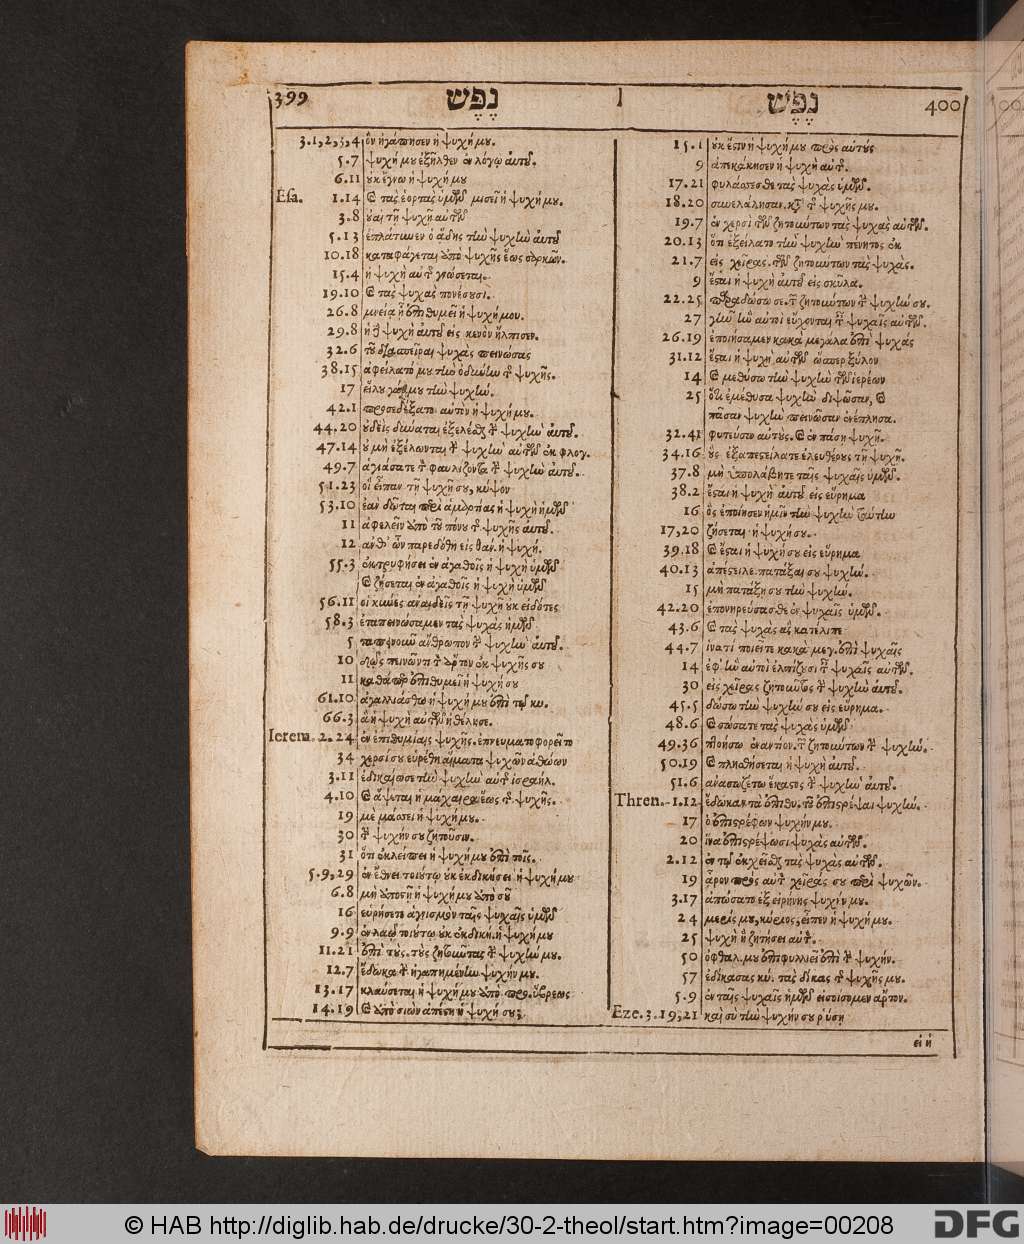 399 נֶפֶשׁ נֶפֶשׁ 400
3.1,2,3,4 ὃν ἠγάπησεν ἡ ψυχή μου.
5.7 ψυχή μου ἐξῆλθεν ἐν λόγῳ αὐτοῦ.
6.11 οὐκ ἔγνω ἡ ψυχή μου
Esa. 1.14 καὶ τὰς ἑορτὰς ὑμῶν μισεῖ ἡ ψυχή μου.
3.8 οὐαὶ τῇ ψυχῇ αὐτῶν
5.13 ἐπλάτυνεν ὁ ᾅδης τὴν ψυχὴν αὐτοῦ
10.18 καταφάγεται ἀπὸ ψυχῆς ἕως σαρκῶν.
15.4 ἡ ψυχὴ αὐτῆς γνώσεται.
19.10 καὶ τὰς ψυχὰς πονέσουσι.
26.8 μνεία ᾗ ἐπιθυμεῖ ἡ ψυχή μου.
29.8 ἡ δὲ ψυχὴ αὐτοῦ εἰς κενὸν ἤλπισεν.
32.6 τοῦ διασπεῖραι ψυχὰς πεινώσας
38.15 ἀφείλατό μου τὴν ὀδύνην τῆς ψυχῆς.
17 εἵλου γάρ μου τὴν ψυχήν.
42.1 προσεδέξατο αὐτὸν ἡ ψυχή μου.
44.20 οὐδεὶς δύναται ἐξελέσθαι τὴν ψυχὴν αὐτοῦ.
47.14 οὐ μὴ ἐξέλωνται τὴν ψυχὴν αὐτῶν ἐκ φλογ.
49.7 ἁγιάσατε τὸν φαυλίζοντα τὴν ψυχὴν αὐτοῦ.
51.23 οἳ εἶπαν τῇ ψυχῇ σου, κύψον
53.10 ἐὰν δῶται περὶ ἁμαρτίας ἡ ψυχὴ ὑμῶν
11 ἀφελεῖν ἀπὸ τοῦ πόνου τῆς ψυχῆς αὐτοῦ.
12 ἀνθ᾽ ὧν παρεδόθη εἰς θάν. ἡ ψυχή.
55.3 ἐντρυφήσει ἐν ἀγαθοῖς ἡ ψυχὴ ὑμῶν
καὶ ζήσεται ἐν ἀγαθοῖς ἡ ψυχὴ ὑμῶν
56.11 οἱ κύνες ἀναιδεῖς τῇ ψυχῇ οὐκ εἰδότες
58.3 ἐταπεινώσαμεν τὰς ψυχὰς ἡμῶν
5 ταπεινοῦν ἄνθρωπον τὴν ψυχὴν αὐτοῦ.
10 δῷς πεινῶντι τὸν ἄρτον ἐκ ψυχῆς σου
11 καθάπερ ἐπιθυμεῖ ἡ ψυχή σου
61.10 ἀγαλλιάσθω ἡ ψυχή μου ἐπὶ τῷ κυ.
66.3 ἃ ἡ ψυχὴ αὐτῶν ἠθέλησε.
Ierem. 2.24 ἐν ἐπιθυμίαις ψυχῆς. ἐπνευματοφορεῖτο
34 χερσί σου εὑρέθη αἵματα ψυχῶν ἀθώων
3.11 ἐδικαίωσε τὴν ψυχὴν αὐτοῦ ἰσραήλ.
4.10 καὶ ἅψεται ἡ μάχαιρα ἕως τῆς ψυχῆς.
19 μεμάωσει ἡ ψυχή μου.
30 τὴν ψυχήν σου ζητοῦσιν.
31 ὅτι ἐκλείπει ἡ ψυχή μου ἐπὶ τοῖς.
5.9,29 ἐν ἔθνει τοιούτῳ οὐκ ἐκδικήσει ἡ ψυχή μου
6.8 μὴ ἀποστῇ ἡ ψυχή μου ἀπὸ σοῦ
16 εὑρήσετε ἁγισμὸν ταῖς ψυχαῖς ὑμῶν
9.9 ἐν λαῷ τοιούτῳ οὐκ ἐκδικη. ἡ ψυχή μου
11.21 ἐπὶ τοὺς. τοὺς ζητοῦντας τὴν ψυχήν μου.
12.7 ἔδωκα τὴν ἠγαπημένην ψυχήν μου.
13.17 κλαύσεται ἡ ψυχή μου ἀπὸ προ. ὕβρεως
14.19 καὶ ἀπὸ σιὼν ἀπέστη ἡ ψυχή σου;
15.1 οὐκ ἔστιν ἡ ψυχή μου πρὸς αὐτούς
9 ἀπεκάκησεν ἡ ψυχὴ αὐτῆς.
17.21 φυλάσσεσθε τὰς ψυχὰς ὑμῶν.
18.20 συνελάλησαν. κατὰ τῆς ψυχῆς μου.
19.7 ἐν χερσὶ τῶν ζητούντων τὰς ψυχὰς αὐτῶν.
20.13 ὅτι ἐξείλατο τὴν ψυχὴν πένητος ἐκ
21.7 εἰς χεῖρας. τῶν ζητούντων τὰς ψυχάς.
9 ἔσται ἡ ψυχὴ αὐτοῦ εἰς σκῦλα.
22.25 παραδώσω σε. τῶν ζητούντων τὴν ψυχήν σου.
27 γῆν ἣν αὐτοὶ εὔχονται ταῖς ψυχαῖς αὐτῶν.
26.19 ἐποιήσαμεν κακὰ μεγάλα ἐπὶ ψυχὰς
31.12 ἔσται ἡ ψυχὴ αὐτῶν ὥσπερ ξύλον
14 καὶ μεθύσω τὴν ψυχὴν τῶν ἱερέων
25 ὅτι ἐμέθυσα ψυχὴν διψῶσαν, καὶ
πᾶσαν ψυχὴν πεινῶσαν ἐνέπλησα.
32.41 φυτεύσω αὐτούς. καὶ ἐν πάσῃ ψυχῇ.
34.16 οὓς ἐξαπεστείλατε ἐλευθέρους τῇ ψυχῇ.
37.8 μὴ ὑπολάβητε ταῖς ψυχαῖς ὑμῶν.
38.2 ἔσται ἡ ψυχὴ αὐτοῦ εἰς εὕρημα
16 ὃς ἐποίησεν ἡμῖν τὴν ψυχὴν ταύτην
17,20 ζήσεται ἡ ψυχή σου.
39.18 καὶ ἔσται ἡ ψυχή σου εἰς εὕρημα
40.13 ἀπέστειλε. πατάξαι σου ψυχήν.
15 μὴ πατάξῃ σου τὴν ψυχήν.
42.20 ἐπονηρεύσασθε ἐν ψυχαῖς ὑμῶν.
43.6 καὶ τὰς ψυχὰς ἃς κατέλιπε
44.7 ἱνατί ποιεῖτε κακὰ μεγ. ἐπὶ ψυχαῖς
14 ἐφ᾽ ἣν αὐτοὶ ἐλπίζουσι ταῖς ψυχαῖς αὐτῶν.
30 εἰς χεῖρας ζητοῦντος τὴν ψυχὴν αὐτοῦ.
45.5 δώσω τὴν ψυχήν σου εἰς εὕρημα.
48.6 καὶ σώσατε τὰς ψυχὰς ὑμῶν
49.36 πτοήσω ἐναντίον. τῶν ζητούντων τὴν ψυχήν.
50.19 καὶ πλησθήσεται ἡ ψυχὴ αὐτοῦ.
51.6 ἀνασωζέτω ἕκαστος τὴν ψυχὴν αὐτοῦ.
Thren. 1.12 ἔδωκαν τὰ ἐπιθυ. τοῦ ἐπιστρέψαι ψυχήν.
17 ὁ ἐπιστρέφων ψυχήν μου.
20 ἵνα ἐπιστρέψωσι ψυχὰς αὐτῶν.
2.12 ἐν τῷ ἐκχεῖσθαι τὰς ψυχὰς αὐτῶν.
19 ἆρον πρὸς αὐτὸν χεῖράς σου περὶ ψυχῶν.
3.17 ἀπώσατο ἐξ εἰρήνης ψυχήν μου.
24 μερίς μου, κύριος, εἶπεν ἡ ψυχή μου.
25 ψυχὴ ἣ ζητήσει αὐτόν.
50 ὀφθαλ. μου ἐπιφυλλιεῖ ἐπὶ τὴν ψυχήν.
57 ἐδίκασας κυ. τὰς δίκας τῆς ψυχῆς μου.
5.9 ἐν ταῖς ψυχαῖς ἡμῶν εἰσοίσομεν ἄρτον.
Eze. 3.19,21 καὶ σὺ τὴν ψυχήν σου ῥύσῃ
ει ἡ
© HAB http://diglib.hab.de/drucke/30-2-theol/start.htm?image=00208 DFG